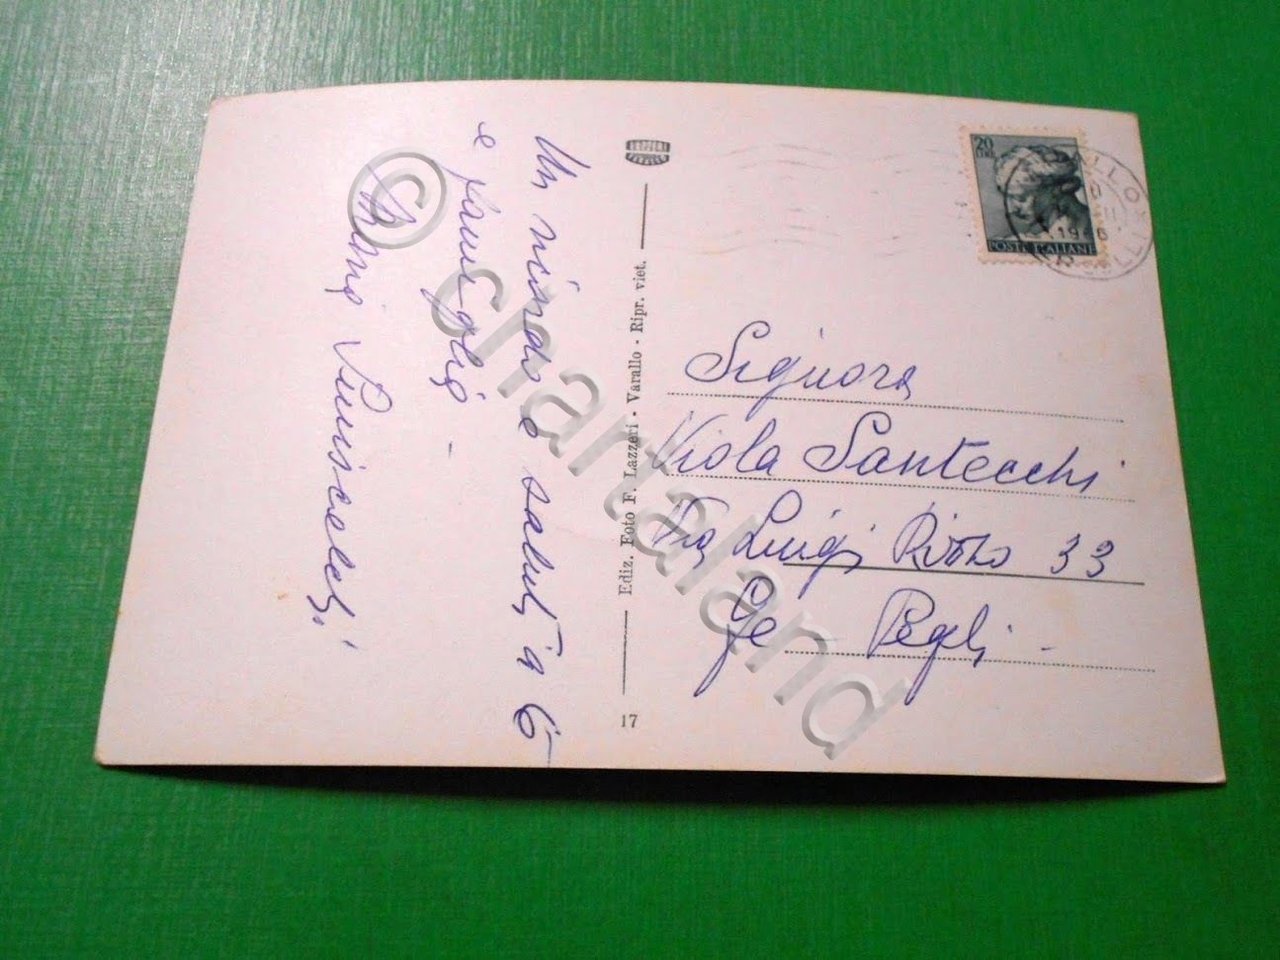 Un ricordo e saluti a te
e famiglia -
20
LIRE
POSTE ITALIANE
1966
LAZZERI
VARALLO
Ediz. Foto F. Lazzeri - Varallo - Ripr. viet.
17
Signora
Viola Santecchi
Via Luigi Rizzo 33
Ge - Pegli -
© Chartaland